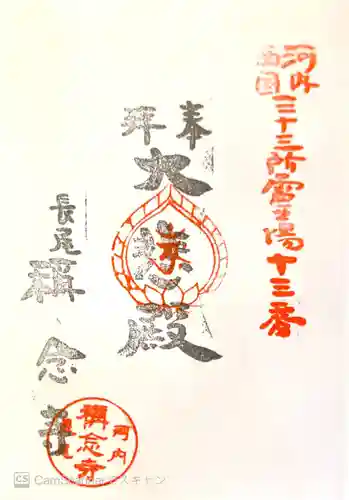 河内
西国
三十三所霊場十三番
奉拝
大悲殿
長尾
稱念寺
河内
稱念寺
CS CamScanner でスキャン